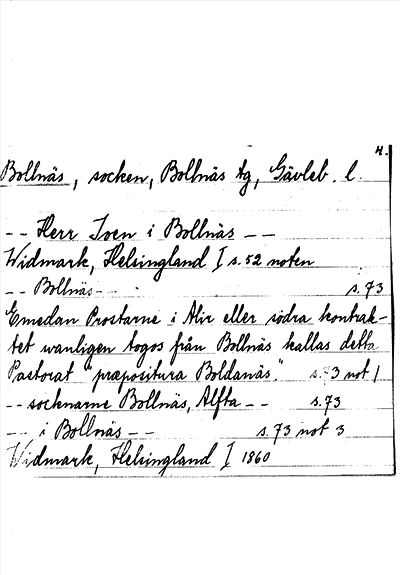 H.
Bollnäs, socken, Bollnäs tg, Gävleb. l.
-- Herr Iven i Bollnäs --
Widmark, Helsingland I s. 52 noten
-- Bollnäs -- s. 73
Emedan Prostarne i Alir eller södra kontrak-
tet wanligen togos från Bollnäs kallas detta
Pastorat "præpositura Boldanäs." s. 73 not 1
-- socknarne Bollnäs, Alfta -- s. 73
-- i Bollnäs -- s. 73 not 3
Widmark, Helsingland I 1860